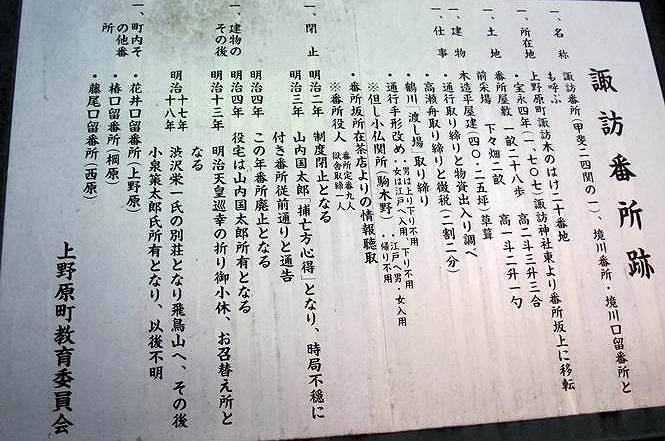 諏訪番所跡
一、名称 諏訪番所(甲斐二四関の一)、境川番所・境川口留番所と
も呼ぶ
一、所在地 上野原町諏訪木のはけ二十番地
・宝永四年(一、七〇七)諏訪神社東より番所坂上に移転
一、土地 番所屋敷 一畝二十八歩 高二斗三升三合
前采場 下々畑二畝 高一斗二升一勺
一、建物 木造平屋建(四〇・二五坪)草葺
一、仕事 ・通行取り締りと物資出入り調べ
・高瀬舟取り締りと徴税(二割二分)
・鶴川「渡し場」取り締り
・通行手形改め・男は上り下り不用、江戸へ男・女入用
・女は江戸へ入用、下り不用 ・帰り不用
※但し小仏関所(駒木野)
・番所坂所在茶店よりの情報聴取
※番所役人 番所定番九人
獄舎取締一人
一、閉止 明治二年 制度閉止となる
明治三年 山内国太郎「捕亡方心得」となり、時局不穏に
付き番所従前通りと通告
明治四年 この年番所廃止となる
一、建物の
その後
明治四年 役宅は山内国太郎所有となる
明治十三年 明治天皇巡幸の折り御小休、お召替え所と
なる
明治十七年 渋沢栄一氏の別荘となり飛鳥山へ、その後
十八年 小泉策太郎氏所有となり、以後不明
一、町内そ
の他番
所
・花井口留番所(上野原)
・椿口留番所(棡原)
・藤尾口留番所(西原)
上野原町教育委員会